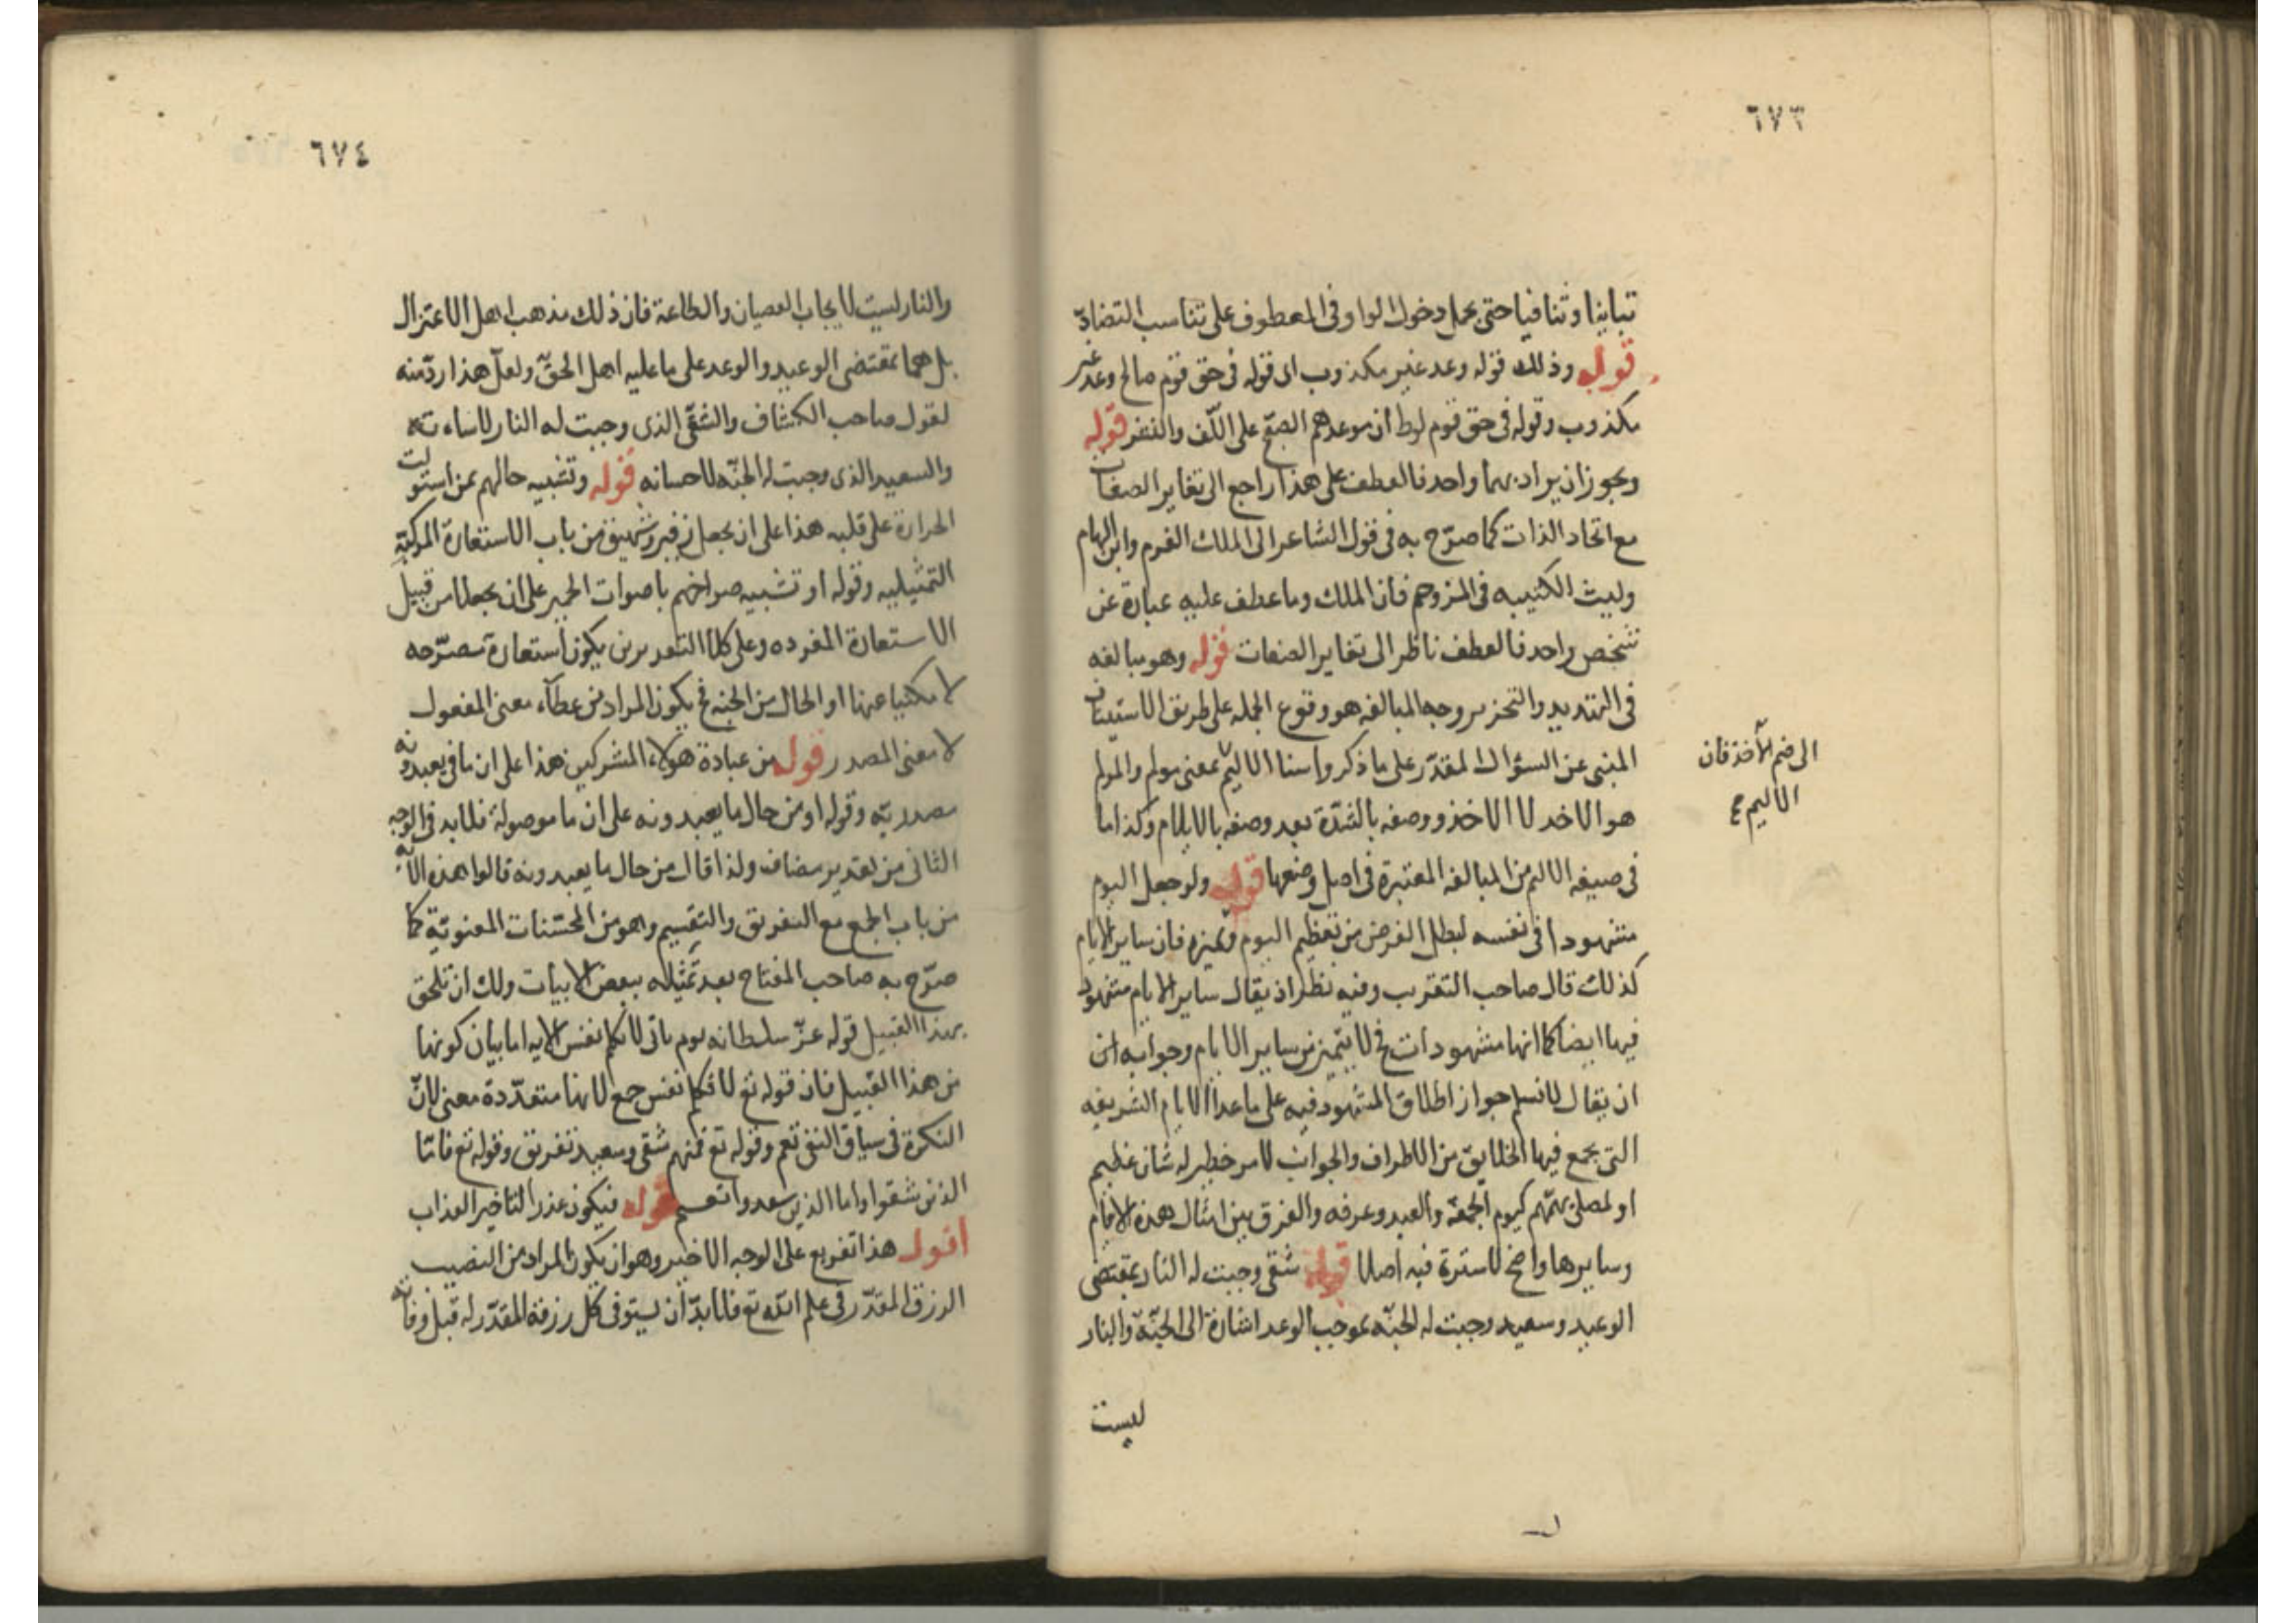 ٦٧٣
تباينا وتنافيا حتى يحمل دخول الواو في المعطوف على تناسب التضاد
قوله وذلك قوله وعد غير مكذوب اى قوله في حق قوم صالح وعد غير
مكذوب وقوله في حق قوم لوط ان موعدهم الصبح على اللف والنشر قوله
ويجوز ان يراد بهما واحد فالعطف على هذا راجع الى تغاير الصفات
مع اتحاد الذات كما صرّح به في قول الشاعر الى الملك القرم وابن الهمام
وليث الكتيبه في المزدحم فان الملك وما عطف عليه عبارة عن
شخص واحد فالعطف ناظر الى تغاير الصفات قوله وهو مبالغه
في التهديد والتحذير ووجه المبالغه هو وقوع الجمله على طريق الاستيناف
المنبى عن السؤال المقدّر على ما ذكر واسنا الاليم بمعنى مولم والمولم
هو الاخد لا الاخذ ووصفه بالشدّة بعد وصفه بالايلام وكذا ما
الى ضم الأخذ فان
الاليم
في صيغه الاليم من المبالغه المعتبرة في اصل وضعها قوله ولو جعل اليوم
مشهودا في نفسه لبطل الغرض من تعظيم اليوم وتميزه فان ساير الايام
كذلك قال صاحب التقريب وفيه نظر اذ يقال ساير الايام مشهود
فيها ايضا كما انها مشهودات فح لا يتميز من ساير الايام وجوابه ان
ان يقال لا نسلم جواز اطلاق المشهود فيه على ما عدا الايام الشريفه
التي يجمع فيها الخلايق من الاطراف والجوانب لامر خطير له شان عظيم
او لمصلح يهمّهم كيوم الجمعة والعيد وعرفه والفرق بين امثال هذه الايام
وسايرها واضح لا سترة فيه اصلا قوله شقى وجبت له النار بمقتضى
الوعيد وسعيد وجبت له الجنّه بموجب الوعد اشارة الى الجنّة والنار
ليست
٦٧٤
والنار ليست لايجاب العصيان والطاعة فان ذلك مذهب اهل الاعتزال
بل هما بمقتضى الوعيد والوعد على ما عليه اهل الحقّ ولعلّ هذا ردّ منه
لقول صاحب الكشاف والشقّى الذى وجبت له النار لاساءته
والسعيد الذى وجبت له الجنّه لاحسانه قوله وتشبيه حالهم بمن استولت
الحرارة على قلبه هذا على ان يجعل زفير وشهيق من باب الاستعارة المركبّة
التمثيليه وقوله او تشبيه صراخهم باصوات الحمير على ان يجعلا من قبيل
الاستعارة المفرده وعلى كلا التقديرين يكون استعارة مصرّحه
لا مكنيا عنها او الحال من الجنه فح يكون المراد من عطآء معنى المفعول
لا معنى المصدر قوله من عبادة هولاء المشركين هذا على ان ما في يعبدونه
مصدريّه وقوله او من حال ما يعبدونه على ان ما موصولة فلا بد في الوجه
الثانى من تقدير مضاف ولذا قال من حال ما يعبدونه قالوا هذه الآيه
من باب الجمع مع التفريق والتقسيم وهو من المحسّنات المعنويّة كما
صرّح به صاحب المفتاح بعد تمثيله ببعض الابيات ولك ان تلحق
بهذا القبيل قوله عزّ سلطانه يوم ياتى لا تكلم نفس الايه اما بيان كونها
من هذا القبيل فان قوله تع لا تكلم نفس جمع لانها متعدّدة معنى لانّ
النكرة في سياق النفى تعم وقوله تع فمنهم شقى وسعيد تفريق وقوله تع فامّا
الذين شقوا واما الذين سعدوا تقسيم قوله فيكون عذرا لتاخير العذاب
اقول هذا تفريع على الوجه الاخير وهو ان يكون المراد من النصيب
الرزق المقدّر في علم اللّه تع فلا بدّ ان يستوفى كل رزقه المقدّر له قبل وفاته